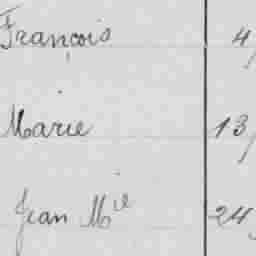 François 4
Marie 13
Jean Mie 24